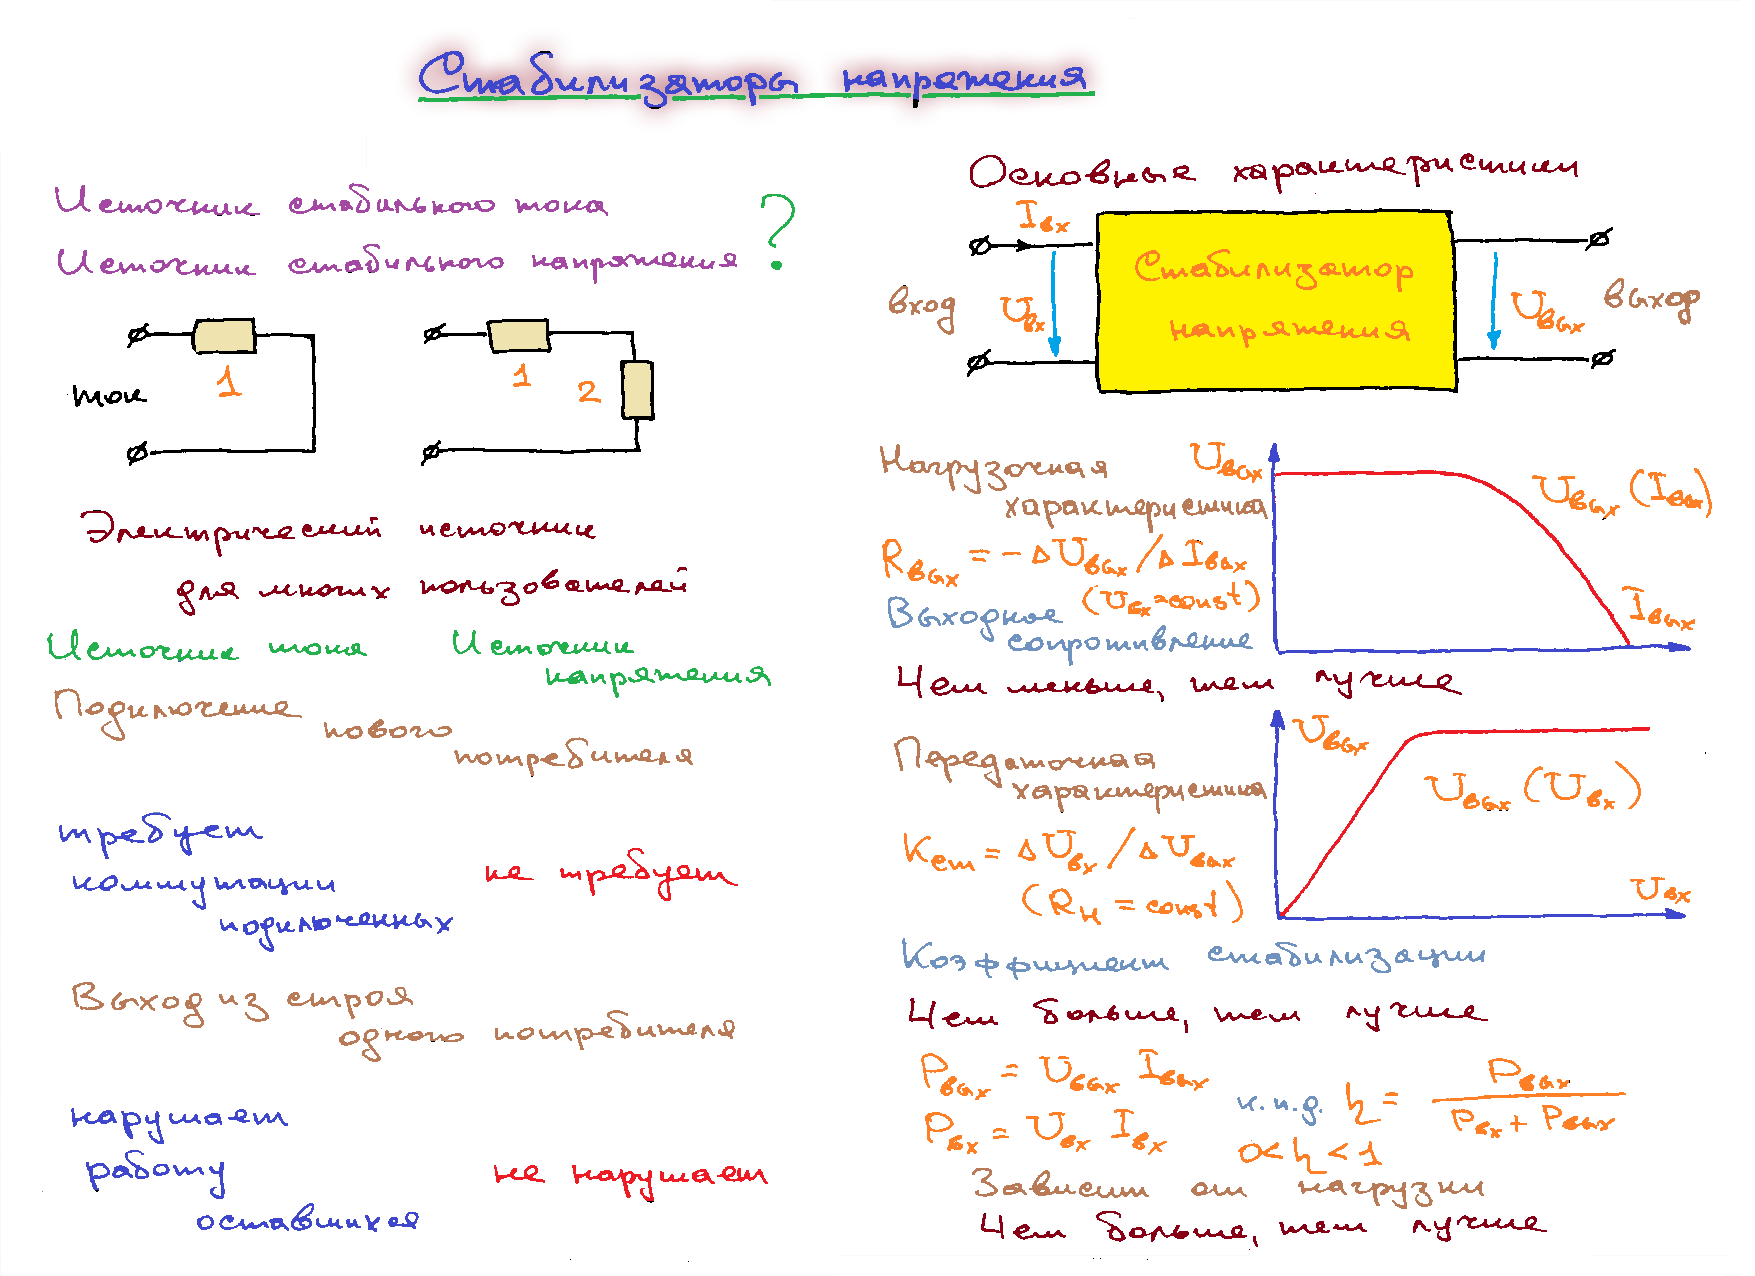 Стабилизаторы напряжения
Источник стабильного тока
Источник стабильного напряжения ?
ток
1
1
2
Электрический источник
для многих пользователей
Источник тока
Источник
напряжения
Подключение
нового
потребителя
требует
коммутации
подключенных
не требует
Выход из строя
одного потребителя
нарушает
работу
оставшихся
не нарушает
Основные характеристики
Iвх
вход
Uвх
Стабилизатор
напряжения
Uвых
выход
Нагрузочная
характеристика
Uвых
Uвых (Iвых)
Rвых = - Δ Uвых / Δ Iвых
(Uвх = const)
Выходное
сопротивление
Iвых
Чем меньше, тем лучше
Передаточная
характеристика
Uвых
Uвых (Uвх)
Кст = Δ Uвх / Δ Uвых
(Rн = const)
Uвх
Коэффициент стабилизации
Чем больше, тем лучше
Pвых = Uвых Iвых
Pвх = Uвх Iвх
к.п.д. η = Pвых / Pвх + Pвых
0 < η < 1
Зависит от нагрузки
Чем больше, тем лучше